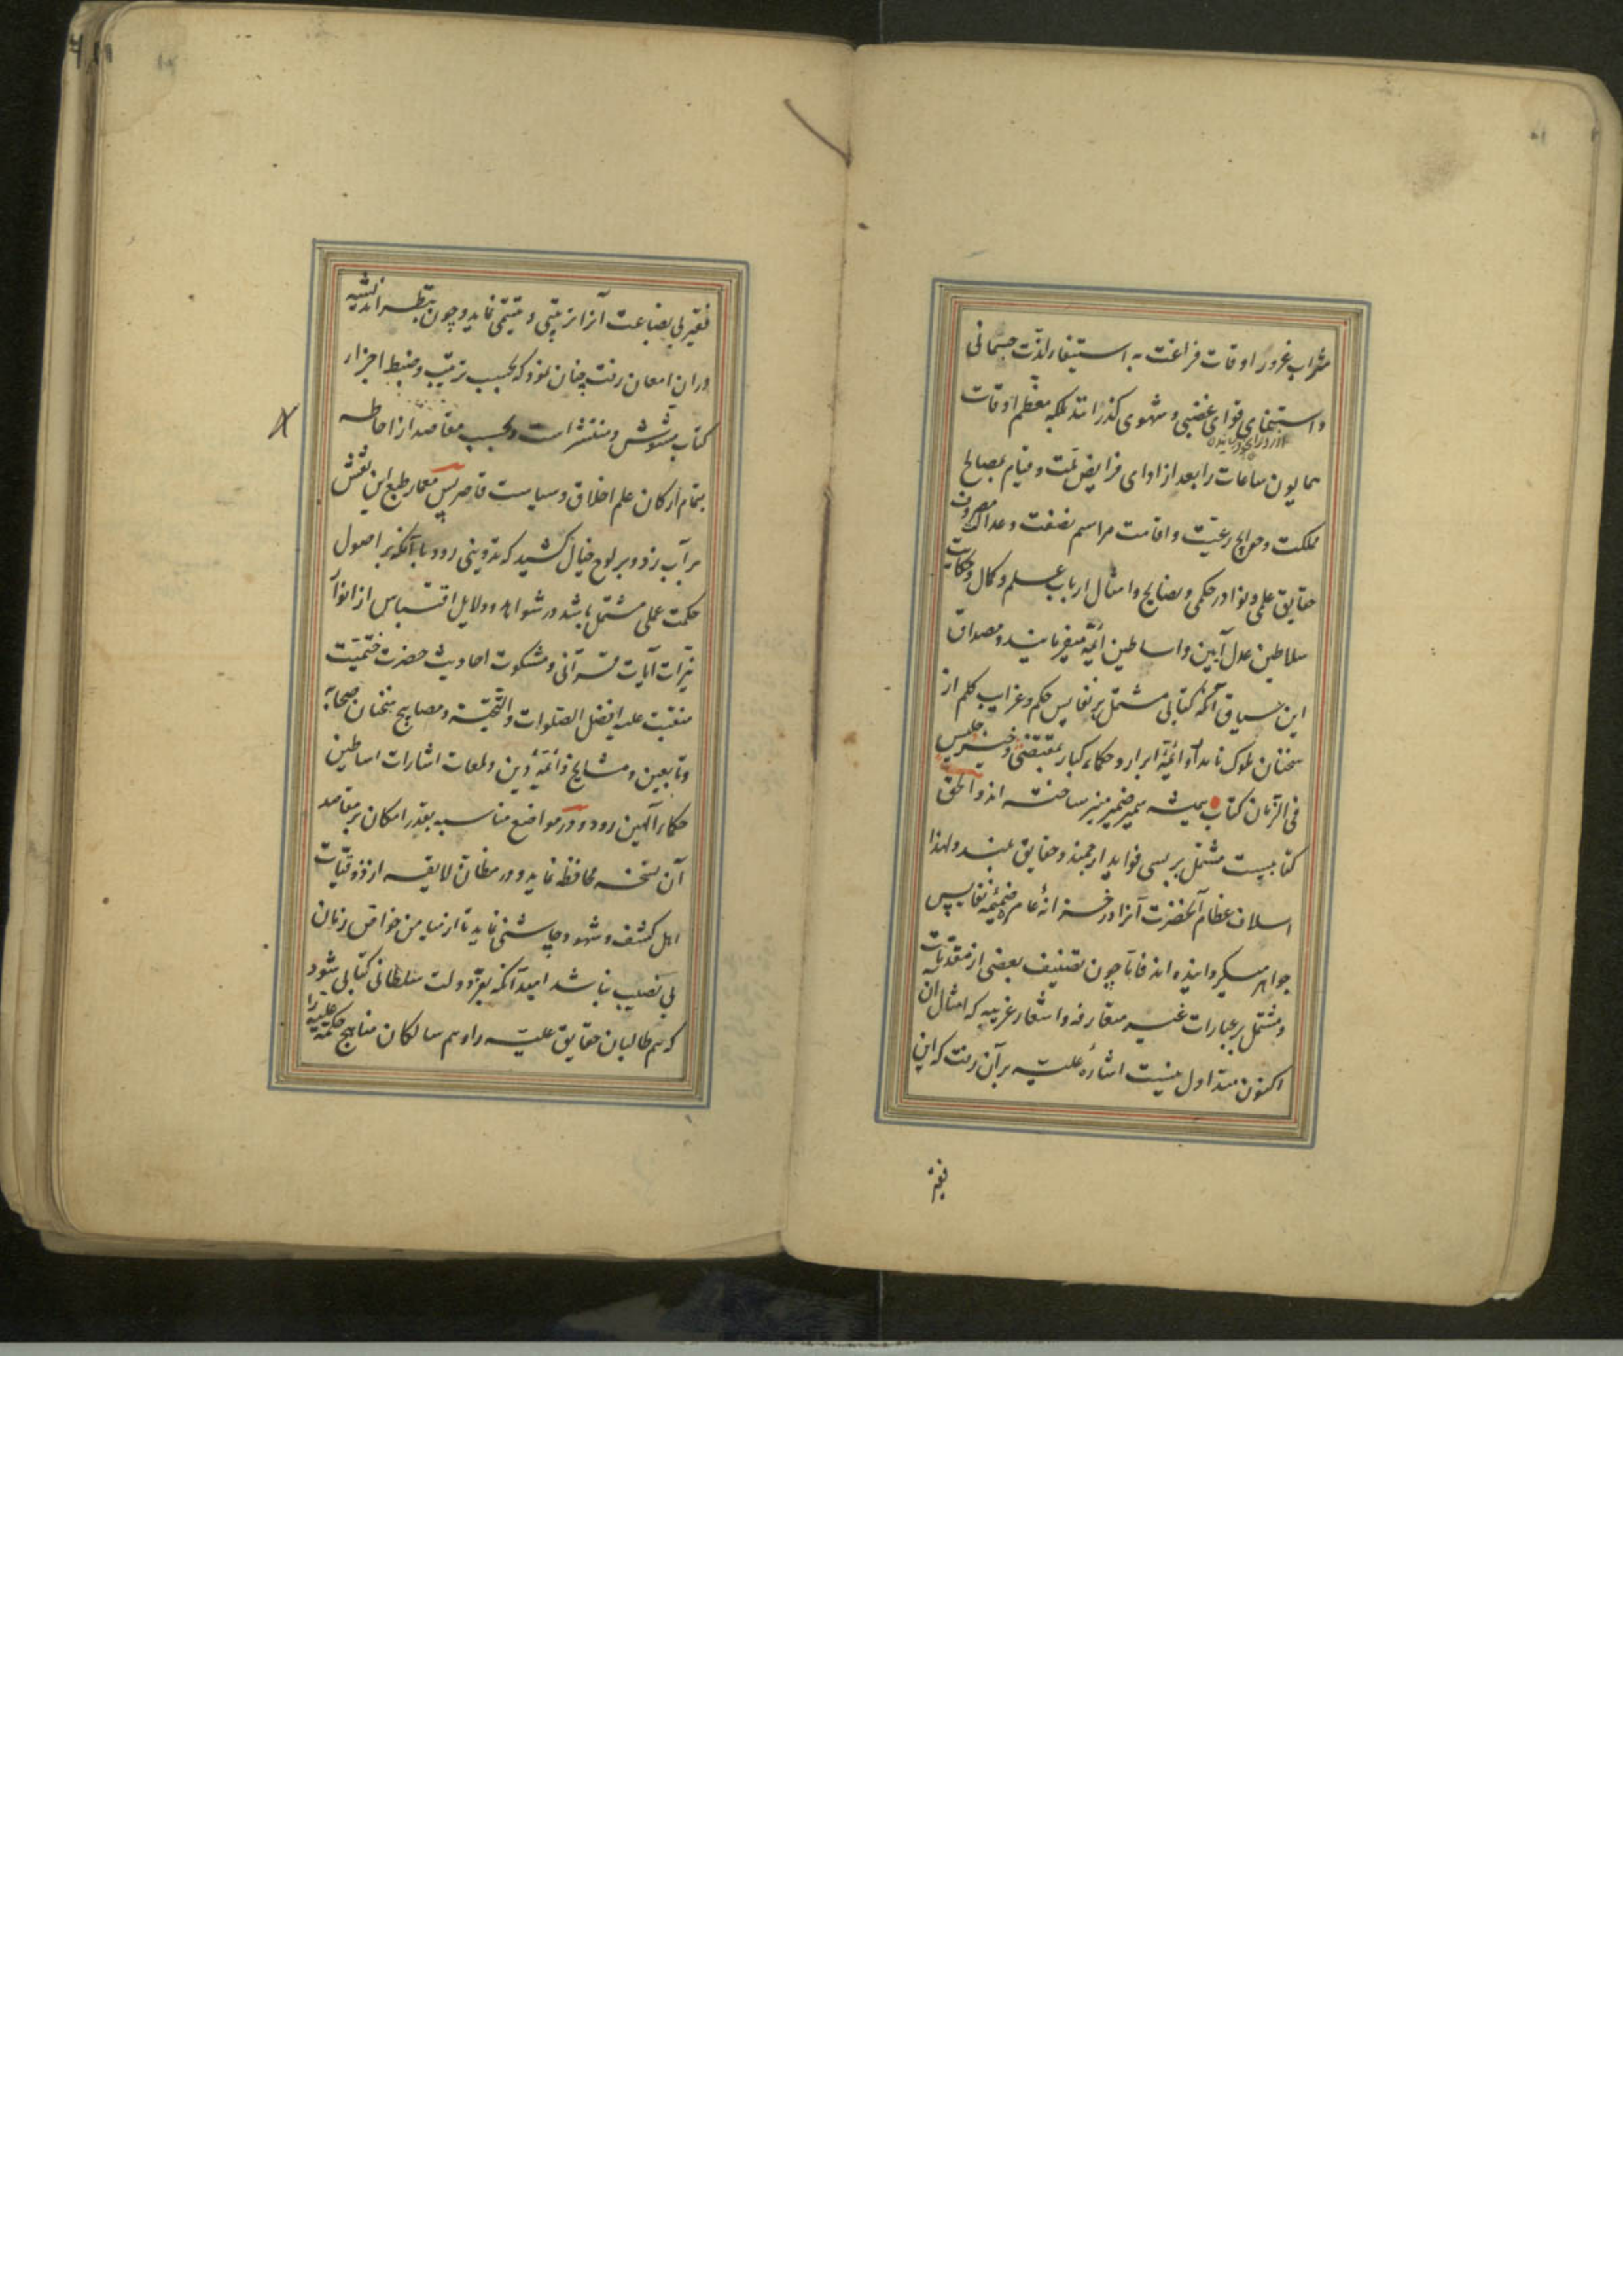 شراب غرور اوقات فراغت به استیفاء لذت جسمانی
و استبقای قوای غضبی و شهوی گذرانند بلکه معظم اوقات
همایون ساعات را بعد از ادای فرایض ملت و قیام بمصالح
مملکت و حوایج رعیت و اقامت مراسم نصفت و عدالت مصروف
حقایق علمی و نوادر حکمی و نصایح و امثال ارباب علم و کمال و حکایات
سلاطین عدل آیین و اساطین ائمه میفرمایند و مصداق
این سیاق آنکه کتابی مشتمل بر نفایس حکم و غرایب کلم از
سخنان ملوک نامدار و ائمهٔ ابرار و حکماء کبار بمقتضی و خیر جلیس
فی الزمان کتاب همیشه سمیر ضمیر منیر ساخته اند و الحق
کتابیست مشتمل بر بسی فواید ارجمند و حقایق بلند و لهذا
اسلاف عظام آنحضرت آنرا در خزانهٔ عامره ضمیمهٔ نفایس
جواهر میگردانیده اند فاما چون تصنیف بعضی از متقدمانست
و مشتمل بر عبارات غیر متعارفه و اشعار غریبه که امثال آن
اکنون متداول نیست اشارهٔ علیه بر آن رفت که این
فقیر
فقیر بی بضاعت آنرا تزیینی و تتمیمی نماید و چون بنظر اندیشه
در آن امعان رفت چنان نمود که بحسب ترتیب و ضبط اجزاء
کتاب مشوش و منتشر است و بحسب مقاصد از احاطه
بتمام ارکان علم اخلاق و سیاست قاصر پس معمار طبع این نقش
بر آب زد و بر لوح خیال کشید که تدوینی رود با آنکه بر اصول
حکمت عملی مشتمل باشد در شواهد و دلایل اقتباس از انوار
نیرات آیات قرآنی و مشکوت احادیث حضرت ختمیت
منقبت علیه افضل الصلوات و التحیة و مصابیح سخنان صحابه
و تابعین و مشایخ و ائمهٔ دین و لمعات اشارات اساطین
حکماء الهین رود و در مواضع مناسبه بقدر امکان بر مقاصد
آن نسخه محافظه نماید و در مظان لایقه از ذوقیات
اهل کشف و شهود چاشنی نماید تا از میامن خواقین زمان
بی نصیب نباشد امید آنکه بفر دولت سلطانی کتابی شود
که هم طالبان حقایق علیه را و هم سالکان مناهج حکمیه علیه را